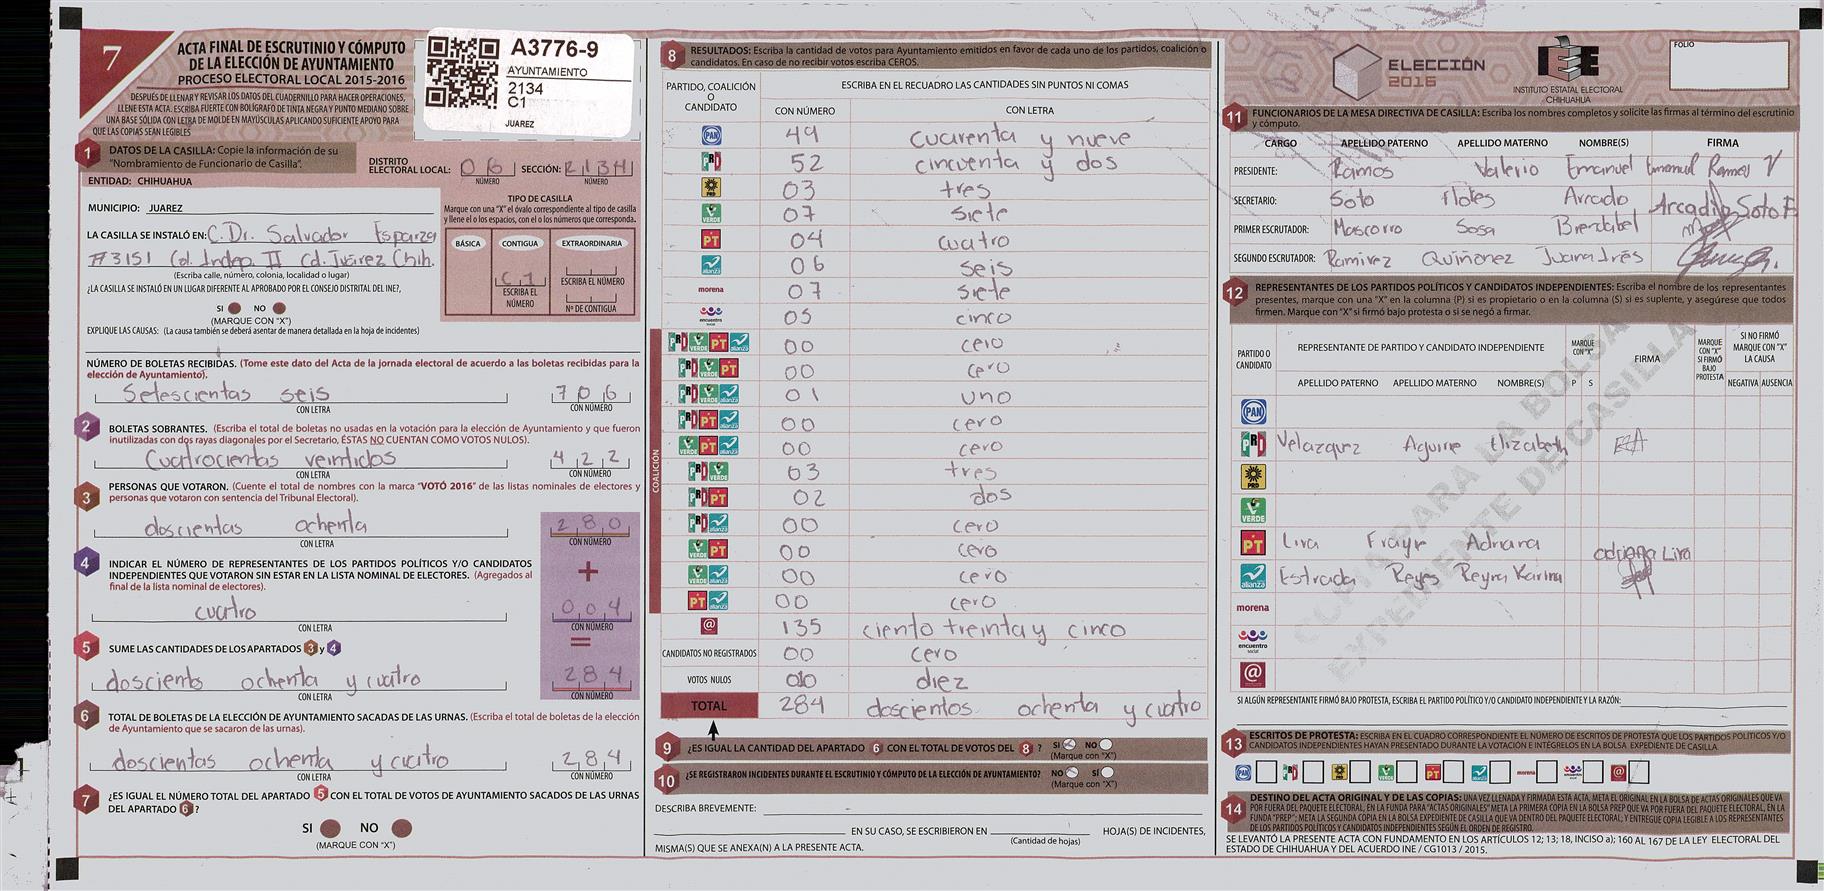 7
ACTA FINAL DE ESCRUTINIO Y CÓMPUTO
DE LA ELECCIÓN DE AYUNTAMIENTO
PROCESO ELECTORAL LOCAL 2015-2016
DESPUÉS DE LLENAR Y REVISAR LOS DATOS DEL CUADERNILLO PARA HACER OPERACIONES,
LLENE ESTA ACTA. ESCRIBA FUERTE CON BOLÍGRAFO DE TINTA NEGRA Y PUNTO MEDIANO SOBRE
UNA BASE SÓLIDA CON LETRA DE MOLDE EN MAYÚSCULAS APLICANDO SUFICIENTE APOYO PARA
QUE LAS COPIAS SEAN LEGIBLES
A3776-9
AYUNTAMIENTO
2134
C1
JUAREZ
1 DATOS DE LA CASILLA: Copie la información de su
"Nombramiento de Funcionario de Casilla".
DISTRITO ELECTORAL LOCAL: 06 NÚMERO SECCIÓN: 2134 NÚMERO
ENTIDAD: CHIHUAHUA
MUNICIPIO: JUAREZ
LA CASILLA SE INSTALÓ EN: C. Dr. Salvador Esparza
#3151 Col. Indep. II Cd. Juárez Chih.
(Escriba calle, número, colonia, localidad o lugar)
¿LA CASILLA SE INSTALÓ EN UN LUGAR DIFERENTE AL APROBADO POR EL CONSEJO DISTRITAL DEL INE?,
SI NO
(MARQUE CON "X")
EXPLIQUE LAS CAUSAS: (La causa también se deberá asentar de manera detallada en la hoja de incidentes)
TIPO DE CASILLA
Marque con una "X" el óvalo correspondiente al tipo de casilla
y llene el o los espacios, con el o los números que corresponda.
BÁSICA CONTIGUA EXTRAORDINARIA
C 1
ESCRIBA EL NÚMERO
ESCRIBA EL NÚMERO
Nº DE CONTIGUA
NÚMERO DE BOLETAS RECIBIDAS. (Tome este dato del Acta de la jornada electoral de acuerdo a las boletas recibidas para la
elección de Ayuntamiento).
Setescientas seis 706
CON LETRA CON NÚMERO
2 BOLETAS SOBRANTES. (Escriba el total de boletas no usadas en la votación para la elección de Ayuntamiento y que fueron
inutilizadas con dos rayas diagonales por el Secretario, ÉSTAS NO CUENTAN COMO VOTOS NULOS).
Cuatrocientas veintidos 422
CON LETRA CON NÚMERO
3 PERSONAS QUE VOTARON. (Cuente el total de nombres con la marca "VOTÓ 2016" de las listas nominales de electores y
personas que votaron con sentencia del Tribunal Electoral).
doscientas ochenta 280
CON LETRA CON NÚMERO
4 INDICAR EL NÚMERO DE REPRESENTANTES DE LOS PARTIDOS POLÍTICOS Y/O CANDIDATOS
INDEPENDIENTES QUE VOTARON SIN ESTAR EN LA LISTA NOMINAL DE ELECTORES. (Agregados al
final de la lista nominal de electores).
+
cuatro 004
CON LETRA CON NÚMERO
=
5 SUME LAS CANTIDADES DE LOS APARTADOS 3 y 4
doscients ochenta y cuatro 284
CON LETRA CON NÚMERO
6 TOTAL DE BOLETAS DE LA ELECCIÓN DE AYUNTAMIENTO SACADAS DE LAS URNAS. (Escriba el total de boletas de la elección
de Ayuntamiento que se sacaron de las urnas).
doscientas ochenta y cuatro 284
CON LETRA CON NÚMERO
7 ¿ES IGUAL EL NÚMERO TOTAL DEL APARTADO 5 CON EL TOTAL DE VOTOS DE AYUNTAMIENTO SACADOS DE LAS URNAS
DEL APARTADO 6?
SI NO
(MARQUE CON "X")
8 RESULTADOS: Escriba la cantidad de votos para Ayuntamiento emitidos en favor de cada uno de los partidos, coalición o
candidatos. En caso de no recibir votos escriba CEROS.
PARTIDO, COALICIÓN O CANDIDATO
ESCRIBA EN EL RECUADRO LAS CANTIDADES SIN PUNTOS NI COMAS
CON NÚMERO CON LETRA
PAN 49 cuarenta y nueve
PRD 52 cincuenta y dos
PRD 03 tres
VERDE 07 siete
PT 04 cuatro
alianza 06 seis
morena 07 siete
encuentro social 05 cinco
COALICIÓN
PRD VERDE PT alianza 00 cero
PRD VERDE PT 00 cero
PRD VERDE alianza 01 uno
PRD PT alianza 00 cero
VERDE PT alianza 00 cero
PRD VERDE 03 tres
PRD PT 02 dos
PRD alianza 00 cero
VERDE PT 00 cero
VERDE alianza 00 cero
PT alianza 00 cero
@ 135 ciento treinta y cinco
CANDIDATOS NO REGISTRADOS 00 cero
VOTOS NULOS 010 diez
TOTAL 284 doscientos ochenta y cuatro
9 ¿ES IGUAL LA CANTIDAD DEL APARTADO 6 CON EL TOTAL DE VOTOS DEL 8? SI NO
(Marque con "X")
10 ¿SE REGISTRARON INCIDENTES DURANTE EL ESCRUTINIO Y CÓMPUTO DE LA ELECCIÓN DE AYUNTAMIENTO? NO SÍ
(Marque con "X")
DESCRIBA BREVEMENTE:
EN SU CASO, SE ESCRIBIERON EN HOJA(S) DE INCIDENTES,
(Cantidad de hojas)
MISMA(S) QUE SE ANEXA(N) A LA PRESENTE ACTA.
ELECCIÓN
2016
IEE
INSTITUTO ESTATAL ELECTORAL
CHIHUAHUA
FOLIO
11 FUNCIONARIOS DE LA MESA DIRECTIVA DE CASILLA: Escriba los nombres completos y solicite las firmas al término del escrutinio
y cómputo.
CARGO APELLIDO PATERNO APELLIDO MATERNO NOMBRE(S) FIRMA
PRESIDENTE: Ramos Valerio Emanuel Emanuel Ramos V
SECRETARIO: Soto Flotes Arcadio Arcadio Soto F
PRIMER ESCRUTADOR: Mascorro Sosa Brendabel
SEGUNDO ESCRUTADOR: Ramirez Quiñonez Juana Inés
12 REPRESENTANTES DE LOS PARTIDOS POLÍTICOS Y CANDIDATOS INDEPENDIENTES: Escriba el nombre de los representantes
presentes, marque con una "X" en la columna (P) si es propietario o en la columna (S) si es suplente, y asegúrese que todos
firmen. Marque con "X" si firmó bajo protesta o si se negó a firmar.
PARTIDO O CANDIDATO
REPRESENTANTE DE PARTIDO Y CANDIDATO INDEPENDIENTE
APELLIDO PATERNO APELLIDO MATERNO NOMBRE(S)
MARQUE CON "X"
P S
FIRMA
MARQUE CON "X" SI FIRMÓ BAJO PROTESTA
SI NO FIRMÓ MARQUE CON "X" LA CAUSA
NEGATIVA AUSENCIA
PAN
PRD Velazquez Aguirre Elizabeth
PRD
VERDE
PT Lira Frayre Adriana adriana Lira
alianza Estrada Reyes Reyna Karina
morena
encuentro social
@
COPIA PARA LA BOLSA
EXPEDIENTE DE CASILLA
SI ALGÚN REPRESENTANTE FIRMÓ BAJO PROTESTA, ESCRIBA EL PARTIDO POLÍTICO Y/O CANDIDATO INDEPENDIENTE Y LA RAZÓN:
13 ESCRITOS DE PROTESTA: ESCRIBA EN EL CUADRO CORRESPONDIENTE EL NÚMERO DE ESCRITOS DE PROTESTA QUE LOS PARTIDOS POLÍTICOS Y/O
CANDIDATOS INDEPENDIENTES HAYAN PRESENTADO DURANTE LA VOTACIÓN E INTÉGRELOS EN LA BOLSA EXPEDIENTE DE CASILLA.
PAN PRD PRD VERDE PT alianza morena encuentro social @
14 DESTINO DEL ACTA ORIGINAL Y DE LAS COPIAS: UNA VEZ LLENADA Y FIRMADA ESTA ACTA, META EL ORIGINAL EN LA BOLSA DE ACTAS ORIGINALES QUE VA
POR FUERA DEL PAQUETE ELECTORAL, EN LA FUNDA PARA "ACTAS ORIGINALES" META LA PRIMERA COPIA EN LA BOLSA PREP QUE VA POR FUERA DEL PAQUETE ELECTORAL, EN LA
FUNDA "PREP"; META LA SEGUNDA COPIA EN LA BOLSA EXPEDIENTE DE CASILLA QUE VA DENTRO DEL PAQUETE ELECTORAL; Y ENTREGUE COPIA LEGIBLE A LOS REPRESENTANTES
DE LOS PARTIDOS POLÍTICOS Y CANDIDATOS INDEPENDIENTES SEGÚN EL ORDEN DE REGISTRO.
SE LEVANTÓ LA PRESENTE ACTA CON FUNDAMENTO EN LOS ARTÍCULOS 12; 13; 18, INCISO a); 160 AL 167 DE LA LEY ELECTORAL DEL
ESTADO DE CHIHUAHUA Y DEL ACUERDO INE / CG1013 / 2015.